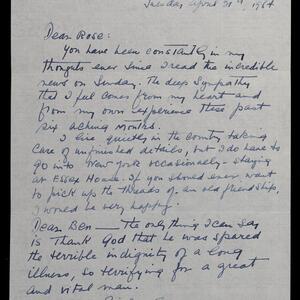 Tuesday April 21st, 1964
Dear Rose:
You have been constantly in my
thoughts ever since I read the incredible
news on Sunday. The deep Sympathy
that I feel comes from my heart and
from my own experience these past
six aching months.
I live quietly in the country taking
care of unfinished details, but I do have to
go into New York occasionally - staying
at Essex House. If you should ever want
to pick up the threads of an old friendship,
I would be very happy.
Dear Ben — The only thing I can say
is Thank God that he was spared
the terrible indignity of a long
illness, so terrifying for a great
and vital man.